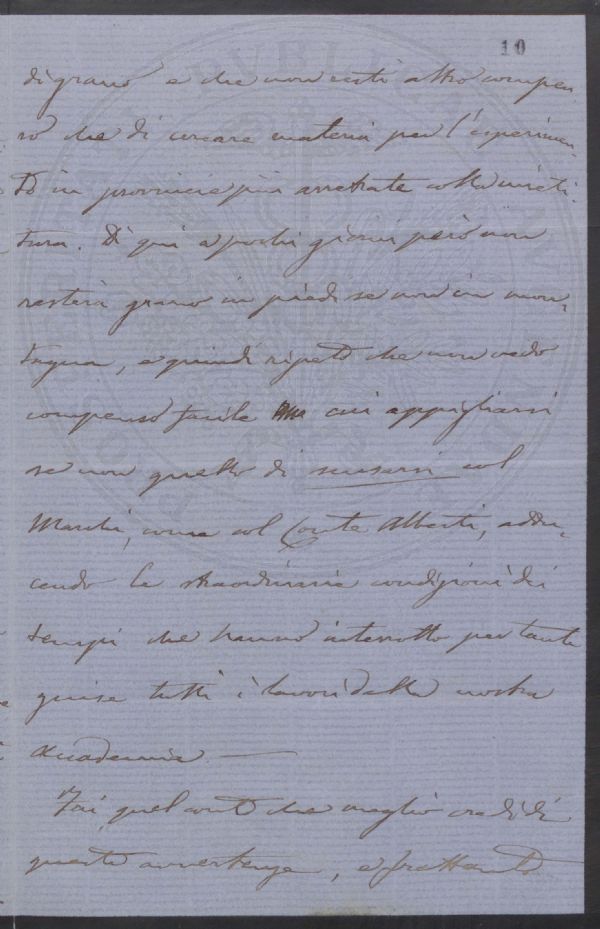 10
di grano e che non resti altro compen-
so che di cercare materia per l'esperimen-
to in provincie più arretrate colla mieti-
tura. Di qui a pochi giorni però non
resterà grano in piedi se non in mon-
tagna, e quindi ripeto che non vedo
compenso facile cui appigliarsi
se non quello di scusarsi col
Marchi, come col Conte Alberti, addu-
cendo le straordinarie condizioni dei
tempi che hanno interrotto per tante
guise tutti i lavori della nostra
Accademia. —
Fai quel conto che meglio credi di
queste avvertenze, e frattanto